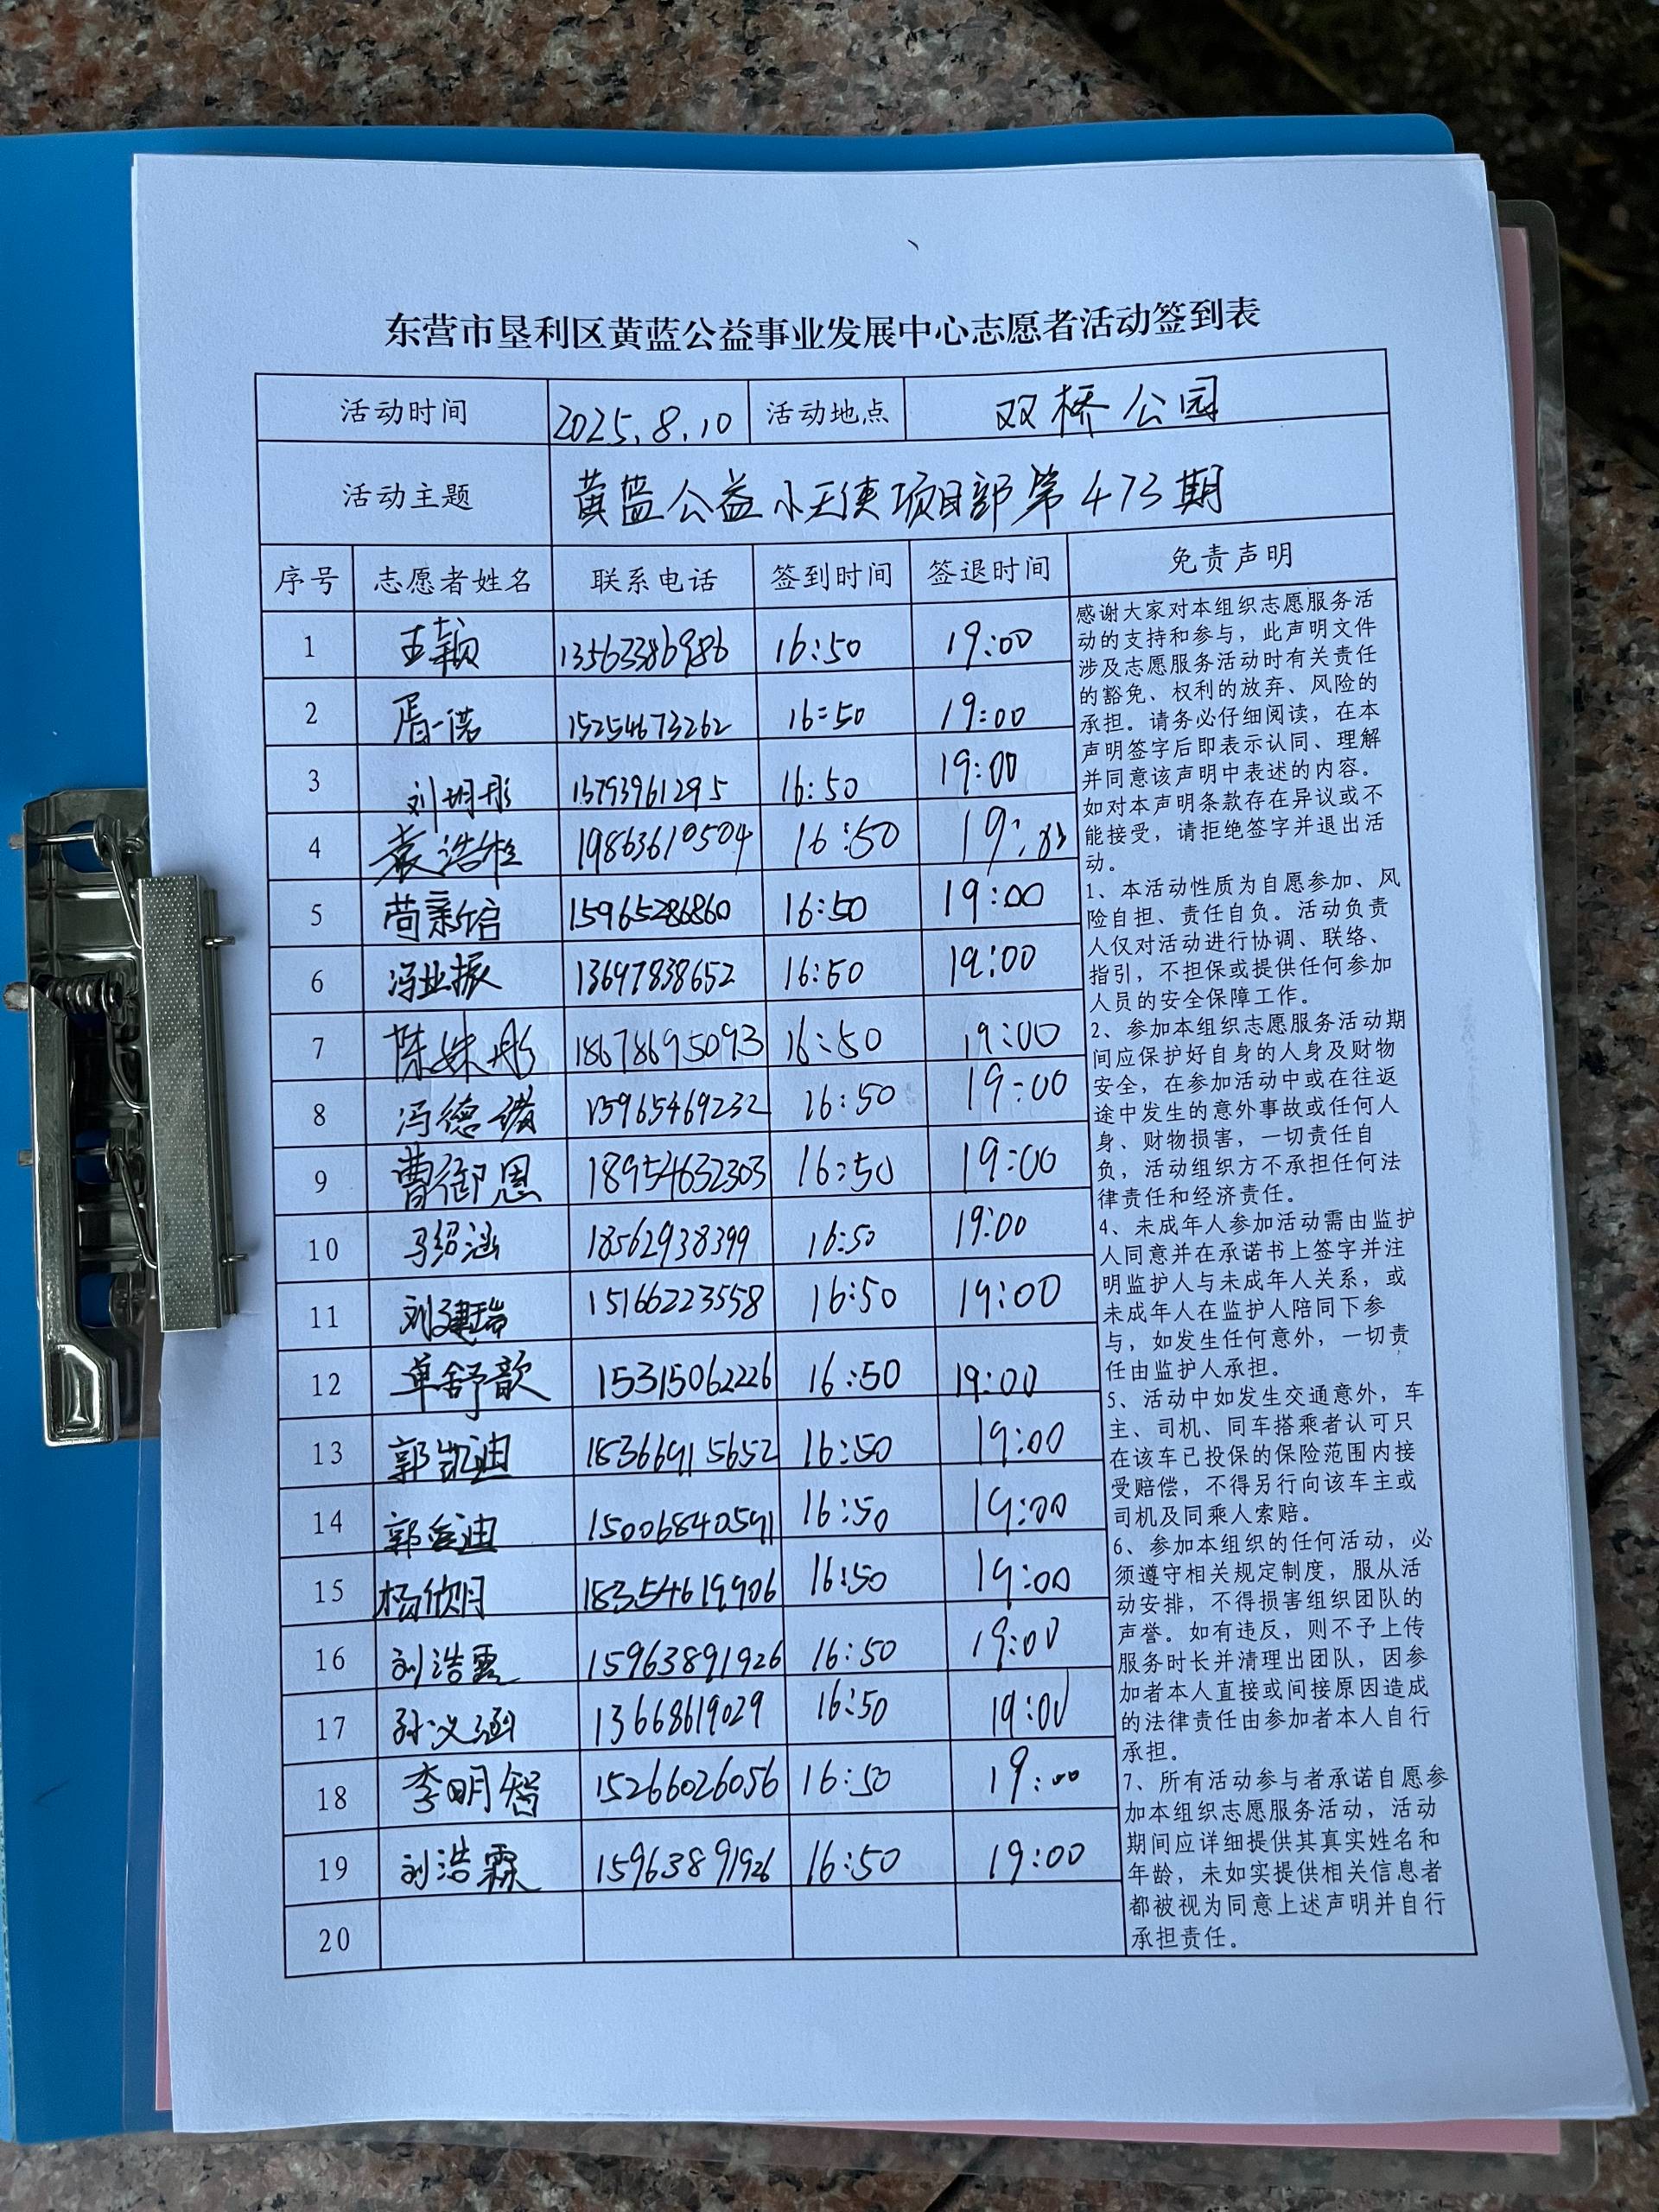 东营市垦利区黄蓝公益事业发展中心志愿者活动签到表
活动时间 2025.8.10 活动地点 双桥公园
活动主题 黄蓝公益小天使项目部第473期
序号 志愿者姓名 联系电话 签到时间 签退时间 免责声明
1 王颖 13563386986 16:50 19:00
2 胥一诺 15254673262 16:50 19:00
3 刘玥彤 13793961295 16:50 19:00
4 袁浩桓 19863610504 16:50 19:00
5 苘新启 15965286860 16:50 19:00
6 冯业振 13697838652 16:50 19:00
7 陈姝彤 18678695093 16:50 19:00
8 冯德诺 15965469232 16:50 19:00
9 曹御恩 18954632303 16:50 19:00
10 马绍涵 18562938399 16:50 19:00
11 刘建瑞 15166223558 16:50 19:00
12 单舒歆 15315062226 16:50 19:00
13 郭凯迪 18366915652 16:50 19:00
14 郭 迪 15006840591 16:50 19:00
15 杨欣玥 18354619906 16:50 19:00
16 刘浩 15963891926 16:50 19:00
17 孙义涵 13668619029 16:50 19:00
18 李明智 15266026056 16:50 19:00
19 刘浩霖 15963891926 16:50 19:00
20
感谢大家对本组织志愿服务活
动的支持和参与，此声明文件
涉及志愿服务活动时有关责任
的豁免、权利的放弃、风险的
承担。请务必仔细阅读，在本
声明签字后即表示认同、理解
并同意该声明中表述的内容。
如对本声明条款存在异议或不
能接受，请拒绝签字并退出活
动。
1、本活动性质为自愿参加、风
险自担、责任自负。活动负责
人仅对活动进行协调、联络、
指引，不担保或提供任何参加
人员的安全保障工作。
2、参加本组织志愿服务活动期
间应保护好自身的人身及财物
安全，在参加活动中或在往返
途中发生的意外事故或任何人
身、财物损害，一切责任自
负，活动组织方不承担任何法
律责任和经济责任。
4、未成年人参加活动需由监护
人同意并在承诺书上签字并注
明监护人与未成年人关系，或
未成年人在监护人陪同下参
与，如发生任何意外，一切责
任由监护人承担。
5、活动中如发生交通意外，车
主、司机、同车搭乘者认可只
在该车已投保的保险范围内接
受赔偿，不得另行向该车主或
司机及同乘人索赔。
6、参加本组织的任何活动，必
须遵守相关规定制度，服从活
动安排，不得损害组织团队的
声誉。如有违反，则不予上传
服务时长并清理出团队，因参
加者本人直接或间接原因造成
的法律责任由参加者本人自行
承担。
7、所有活动参与者承诺自愿参
加本组织志愿服务活动，活动
期间应详细提供其真实姓名和
年龄，未如实提供相关信息者
都被视为同意上述声明并自行
承担责任。